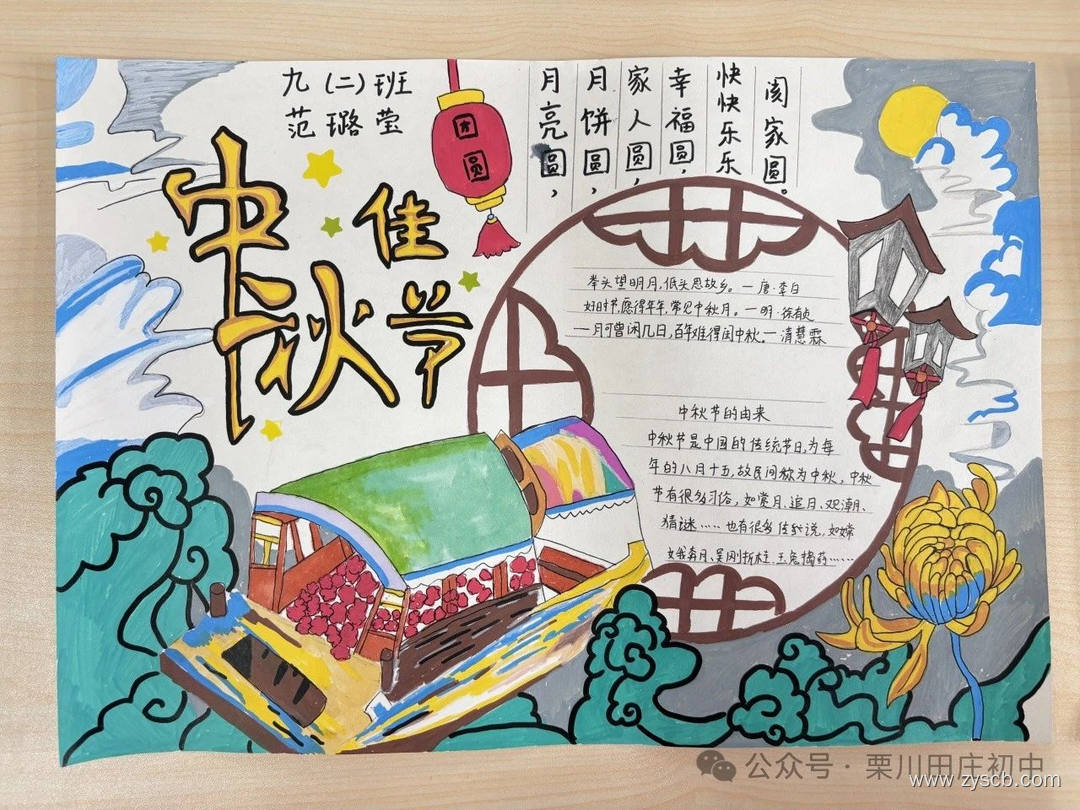 九(二)班
范璐莹
中秋
佳节
团圆
月亮圆，
月饼圆，
家人圆，
幸福圆，
快快乐乐
阖家圆。
举头望明月，低头思故乡。一唐·李白
好时节，愿得年年，常见中秋月。一明·徐有贞
一月可曾闲几日，百年难得闰中秋。一清慧霖
中秋节的由来
中秋节是中国的传统节日，为每
年的八月十五，故民间称为中秋，中秋
节有很多习俗，如赏月、追月、观潮、
猜谜……也有很多传说，如嫦
娥奔月、吴刚折桂、玉兔捣药……
公众号·栗川田庄初中
www.zyscb.com